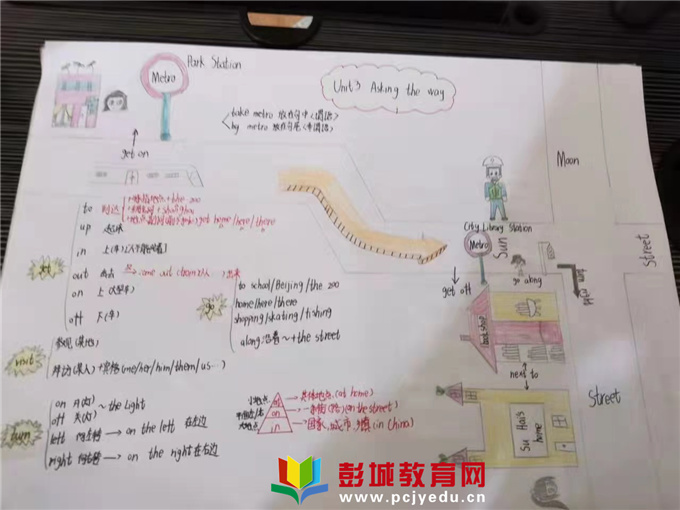 Park Station
Metro
Unit3 Asking the way
take metro 放在句中(谓语)
by metro 放在句尾(非谓语)
get on
Moon
Street
City Library Station
Metro
Sun
go along
get off
bookshop
next to
Su Hai's
home
Street
to 到达
+the zoo
get home/here/there
up 起床
in
out
come out (from)
出来
on 上(
off 下(车)
go
to school/Beijing/the zoo
home/here/there
shopping/skating/fishing
along 沿着~+the street
visit
参观(某地)
拜访(某人)+宾格(me/her/him/them/us...)
turn
on 开(灯)
off 关(灯)
~the light
left 向左转 → on the left 在左边
right 向右转 → on the right 在右边
小地点
大地点
at
on
in
具体地点 (at home)
(on the street)
国家,城市,
(in China)
彭城教育网
www.pcjyedu.cn